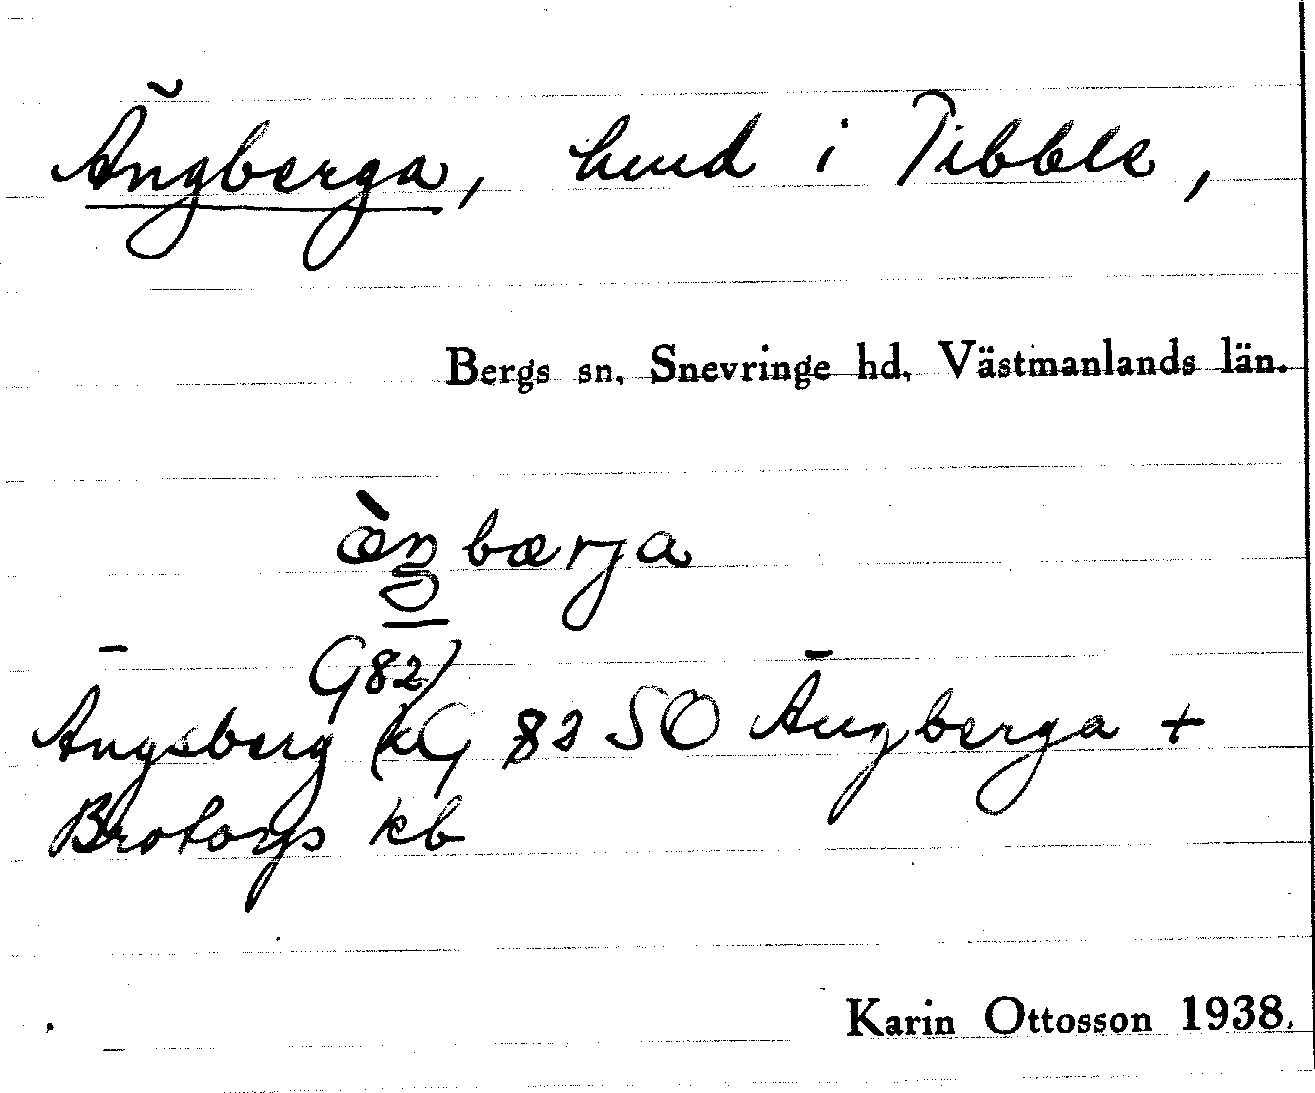 Ängberga, hmd i Tibble,
Bergs sn, Snevringe hd, Västmanlands län.
æ̀ŋbærja
G82)
Ängsberg (kG 82 SO Ängberga +
Brotorps kb
Karin Ottosson 1938.